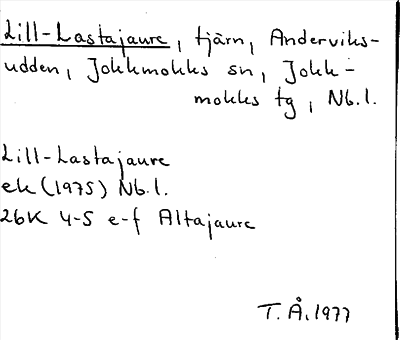 Lill-Lastajaure, tjärn, Anderviks-
udden, Jokkmokks sn, Jokk-
mokks tg, Nb.l.
Lill-Lastajaure
ek (1975) Nb.l.
26K 4-5 e-f Altajaure
T.Å. 1977